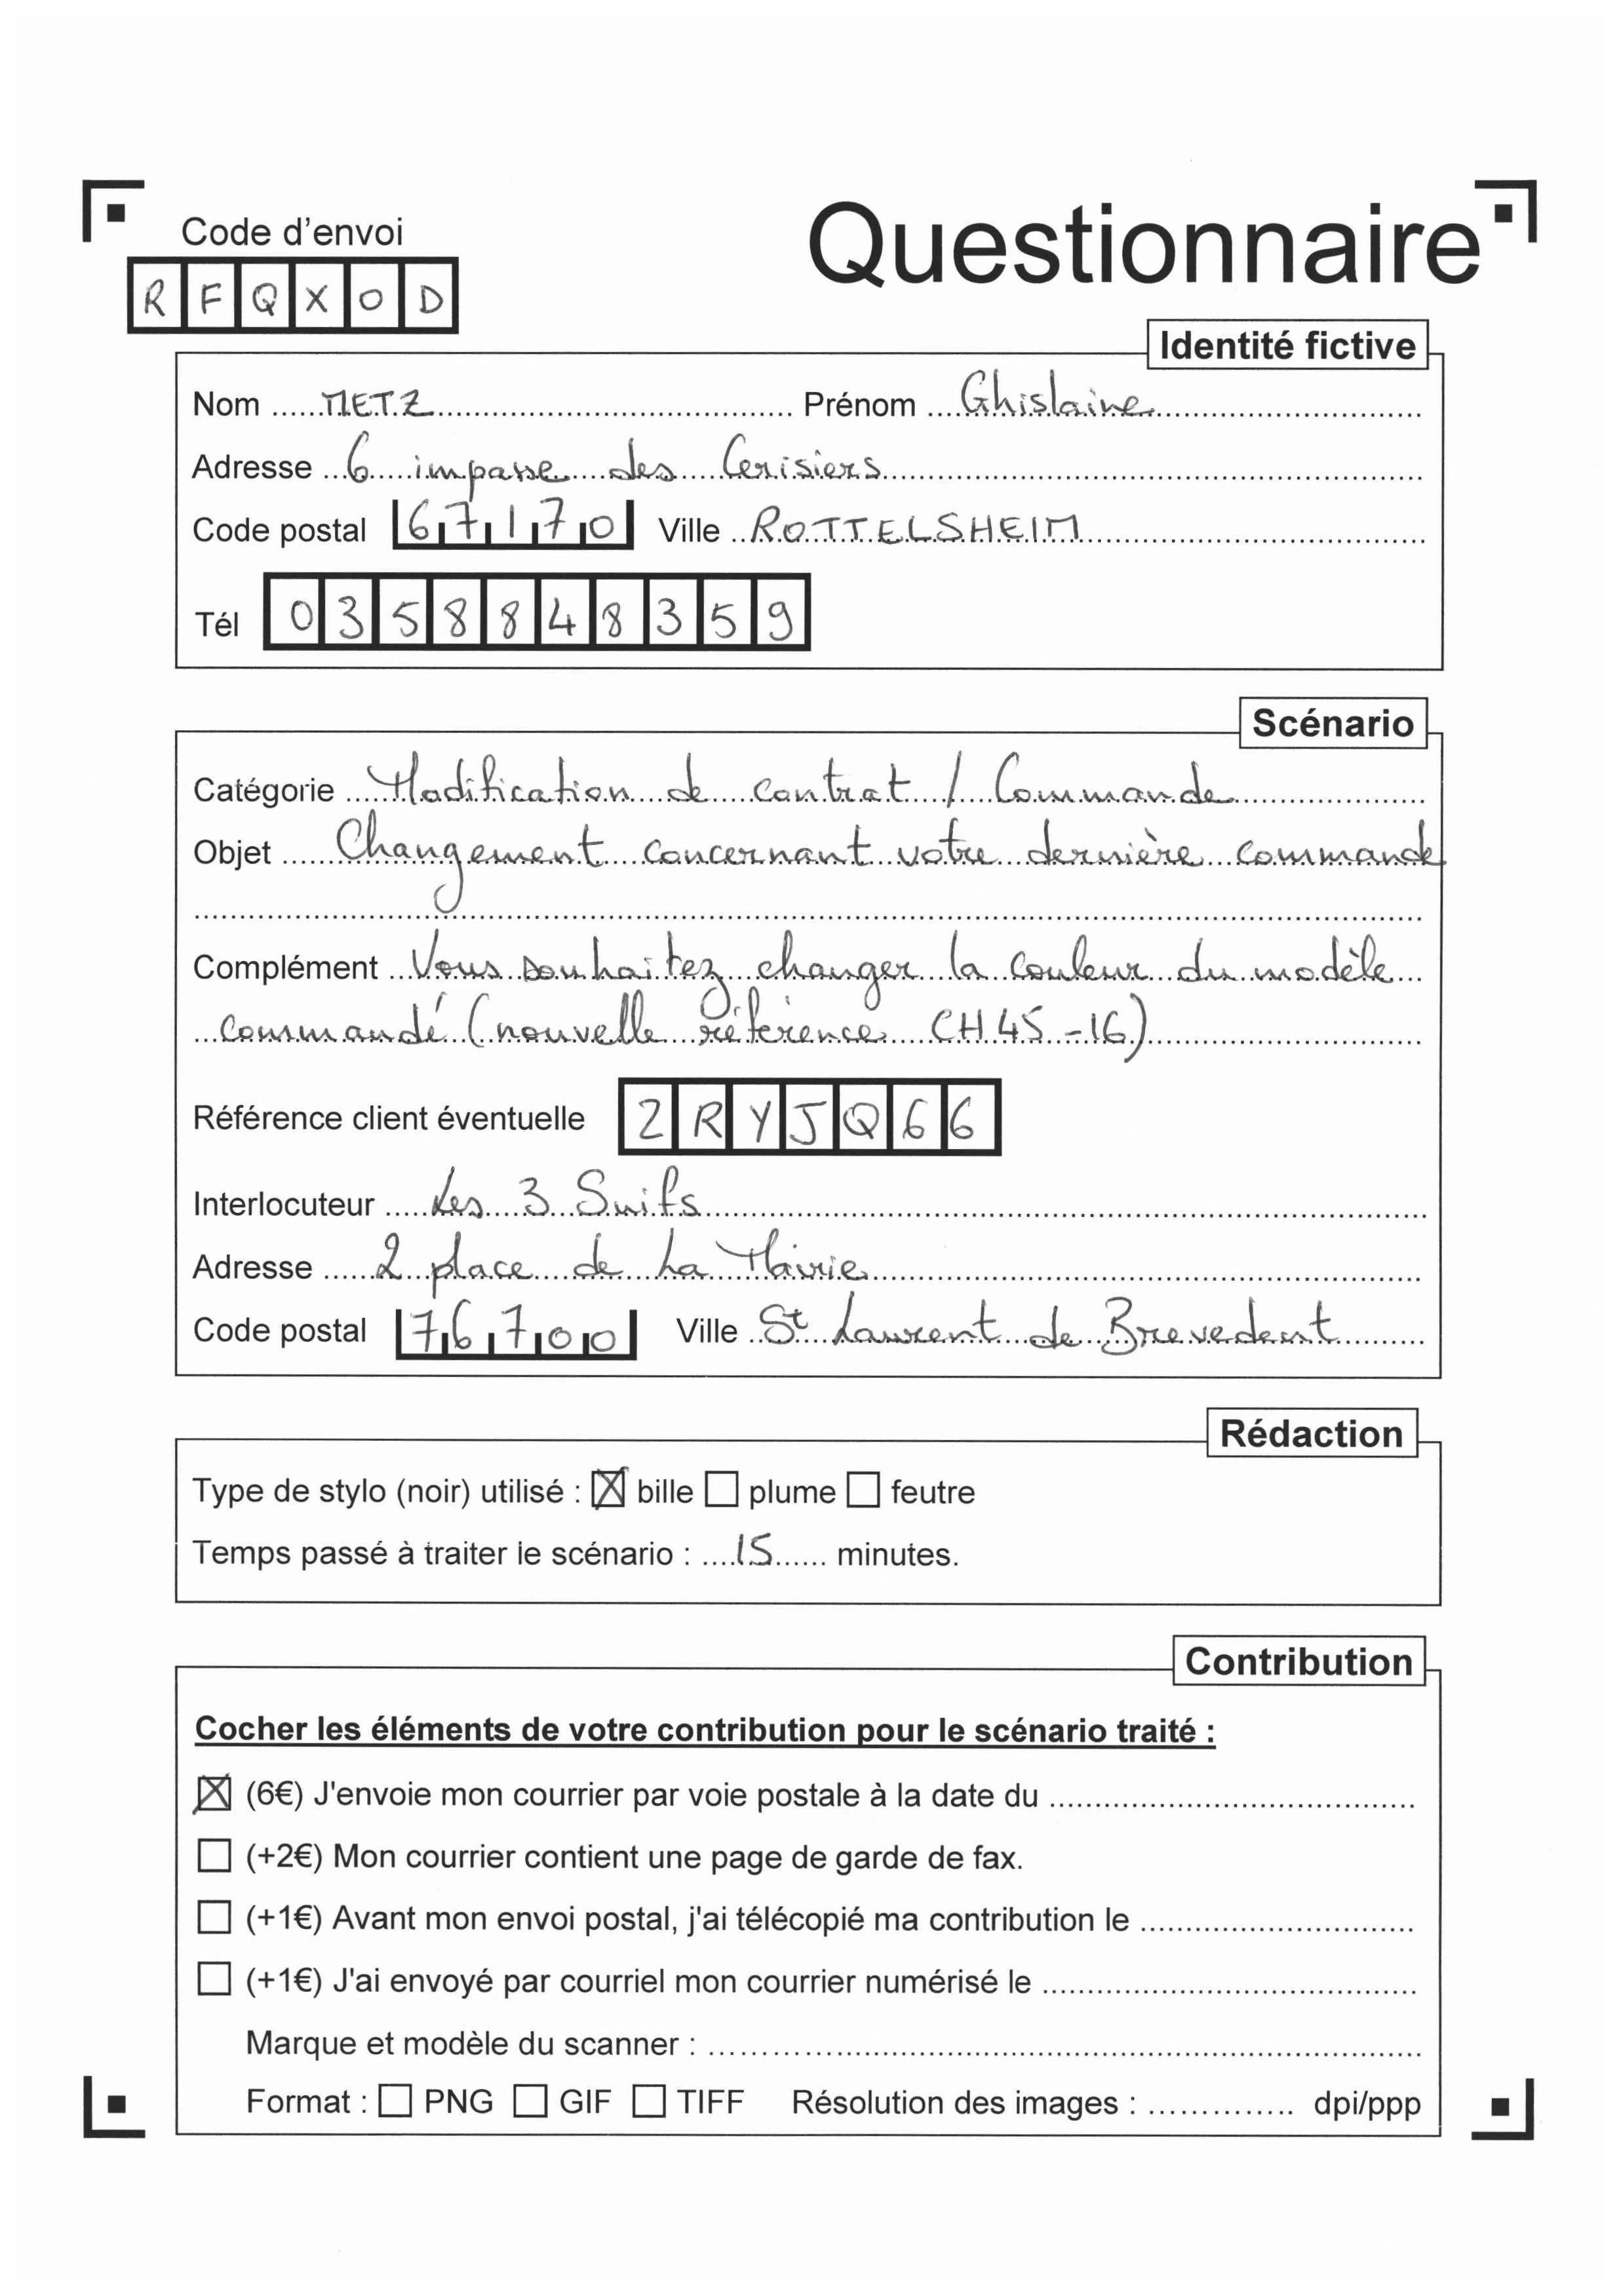 Code d'envoi
Questionnaire
R F Q X O D
Identité fictive
Nom ...... METZ ...... Prénom .... Ghislaine ......
Adresse ... 6 impasse des Cerisiers ......
Code postal 67170 Ville .. ROTTELSHEIM ......
Tél 0358848359
Scénario
Catégorie ...... Modification de contrat / Commande ......
Objet ...... Changement concernant votre dernière commande
Complément .. Vous souhaitez changer la couleur du modèle ...
... commandé (nouvelle référence CH45-16) ......
Référence client éventuelle 2RYJQ66
Interlocuteur ..... Les 3 Suifs ......
Adresse ...... 2 place de La Mairie ......
Code postal 76700 Ville .. St Laurent de Brevedent ......
Rédaction
Type de stylo (noir) utilisé : ☒ bille ☐ plume ☐ feutre
Temps passé à traiter le scénario : .... 15 ...... minutes.
Contribution
Cocher les éléments de votre contribution pour le scénario traité :
☒ (6€) J'envoie mon courrier par voie postale à la date du ......
☐ (+2€) Mon courrier contient une page de garde de fax.
☐ (+1€) Avant mon envoi postal, j'ai télécopié ma contribution le ......
☐ (+1€) J'ai envoyé par courriel mon courrier numérisé le ......
Marque et modèle du scanner : ......
Format : ☐ PNG ☐ GIF ☐ TIFF Résolution des images : .............. dpi/ppp